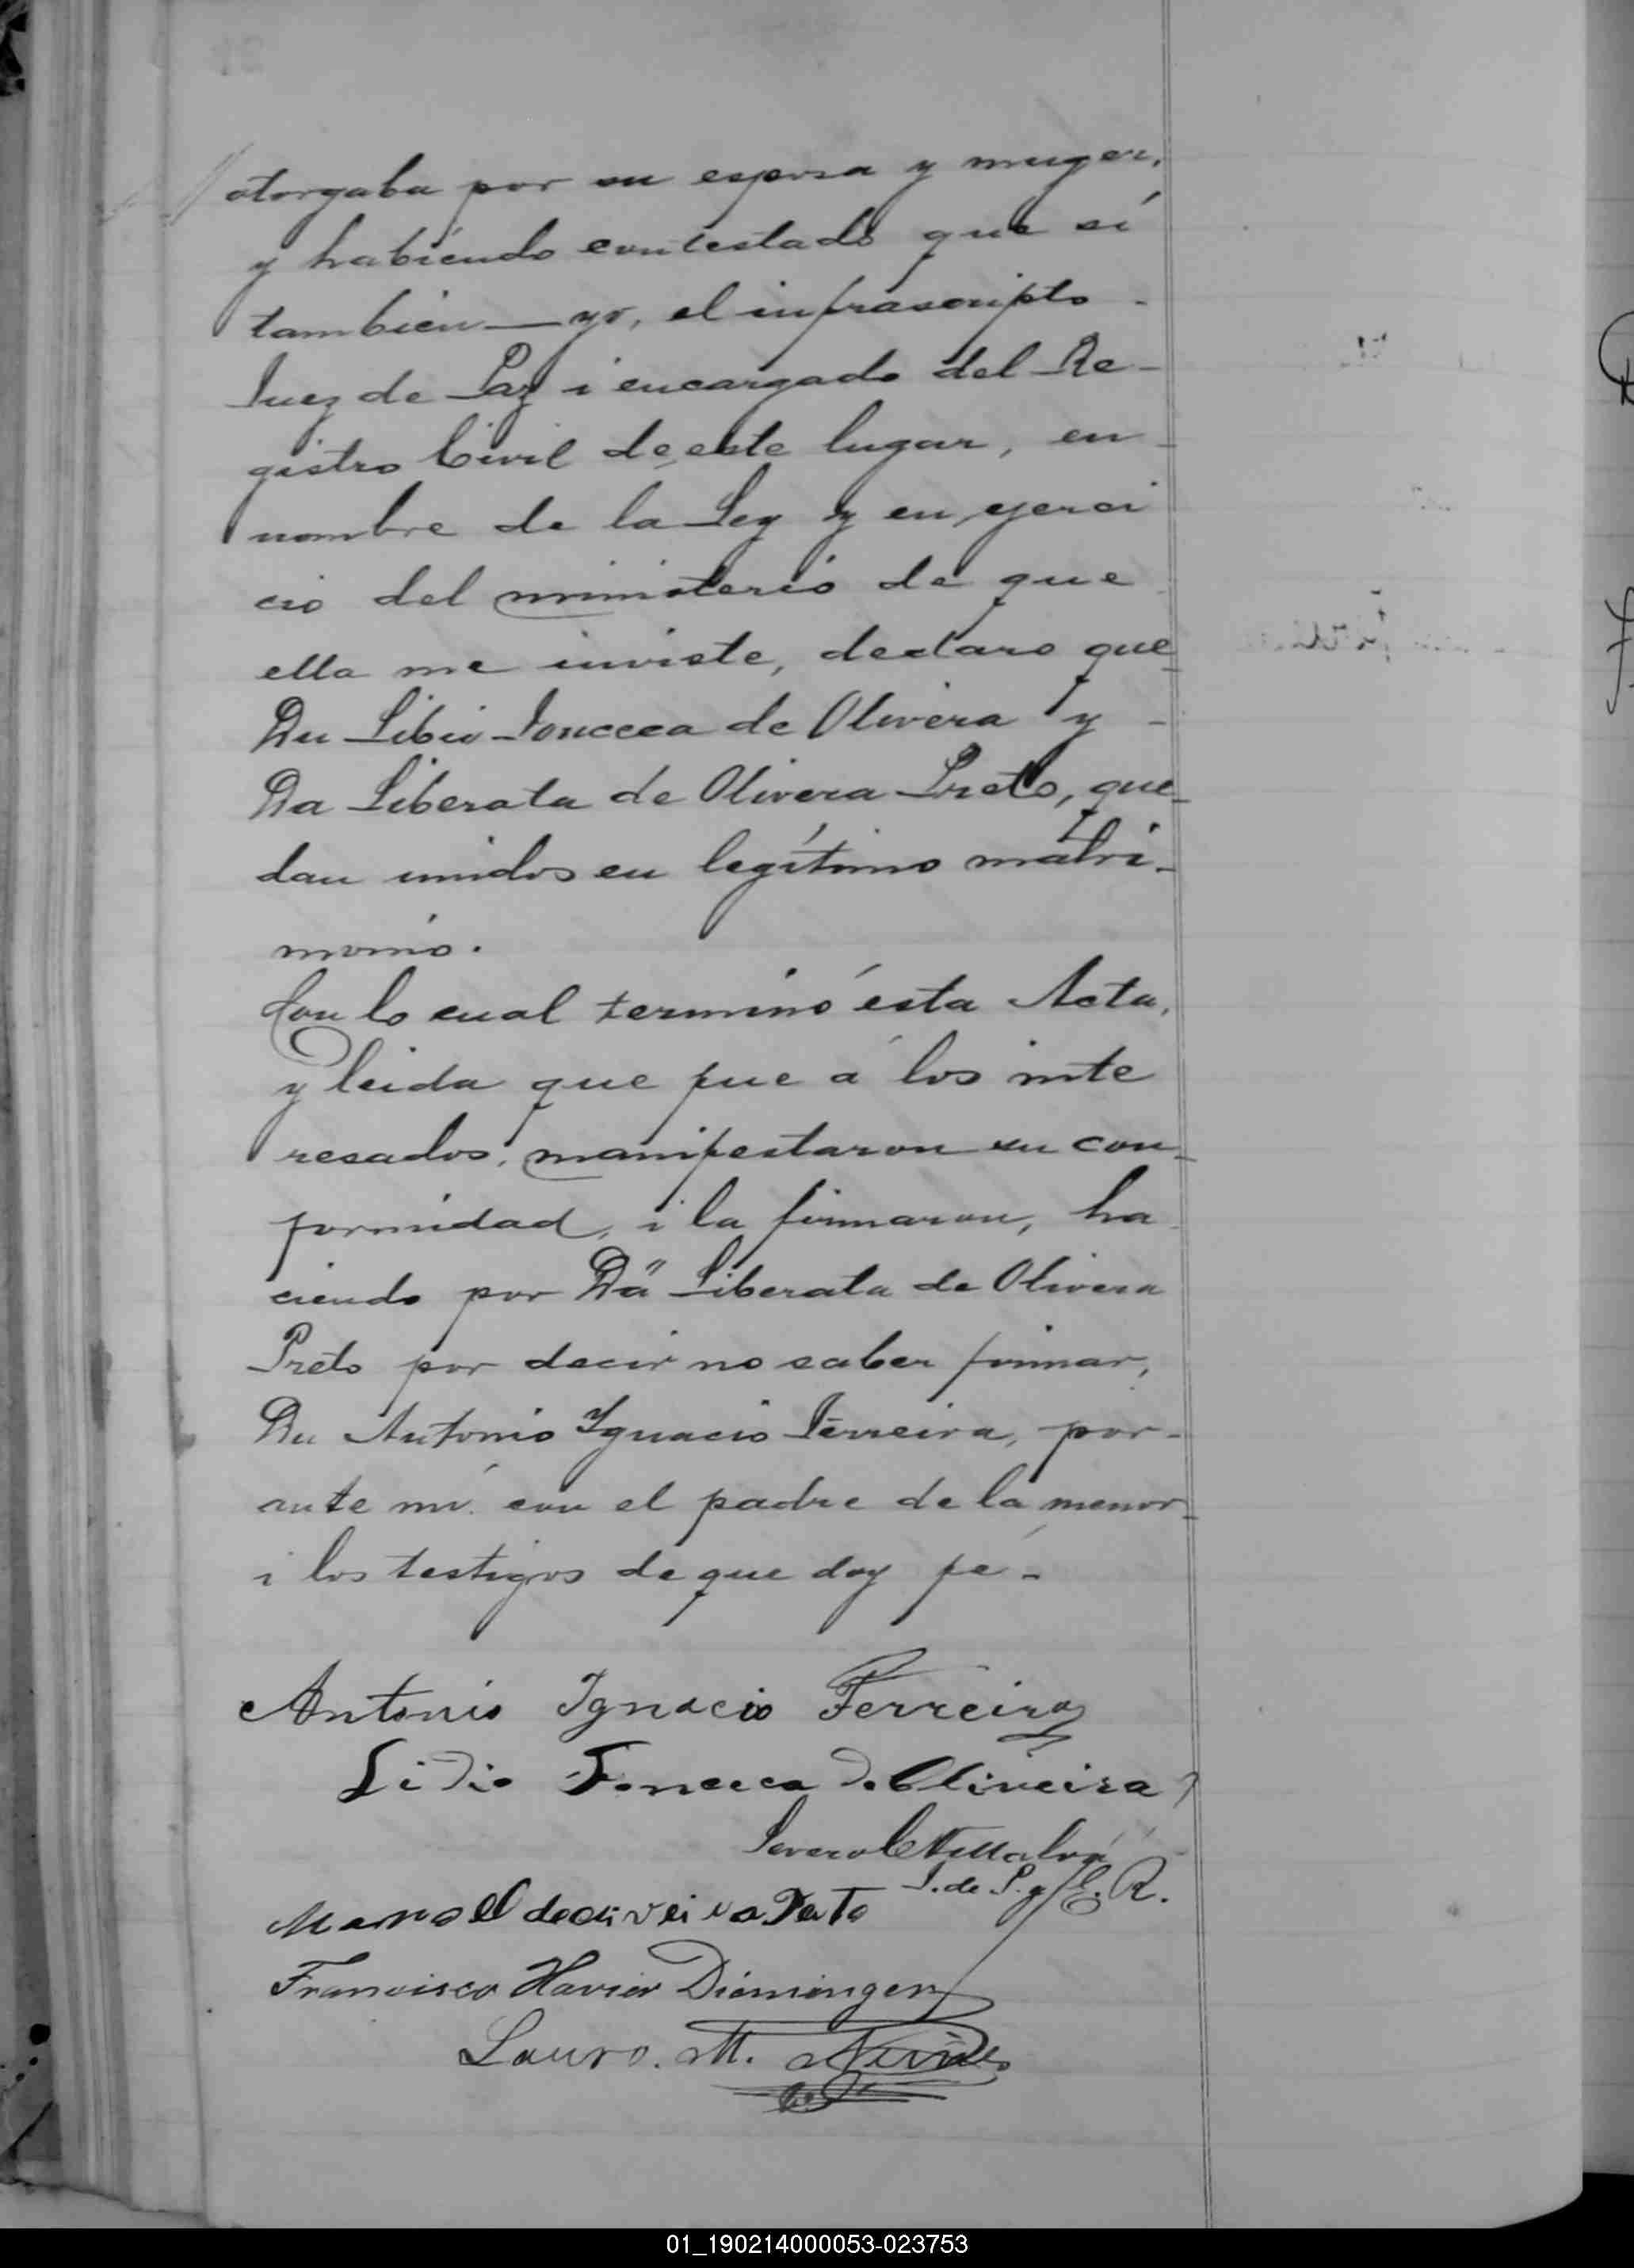 otorgaba por su esposa y muger,
y habiendo contestado que sí
tambien — yo, el infrascripto -
Juez de Paz i encargado del Re-
gistro Civil de este lugar, en
nombre de la Ley y en ejerci
cio del ministerio de que
ella me inviste, declaro que
Dn Libio Fonceca de Olivera y -
Da Liberata de Olivera Preto, que-
dan unidos en legítimo matri-
monio.
Con lo cual terminó ésta Acta,
y leida que fue á los inte
resados, manifestaron su con-
formidad, i la firmaron, ha
ciendo por Da Liberata de Olivera
Preto por decir no saber firmar,
Dn Antonio Ygnacio Ferreira, por-
ante mí con el padre de la menor
i los testigos de que doy fé -
Antonio Ignacio Ferreira
Lidio Fonceca d Oliveira
Severo Villalva
J. de P. y E. R.
Manoel de oliveira
Francisco Xavier
Lauro. M. Nunes
01_190214000053-023753